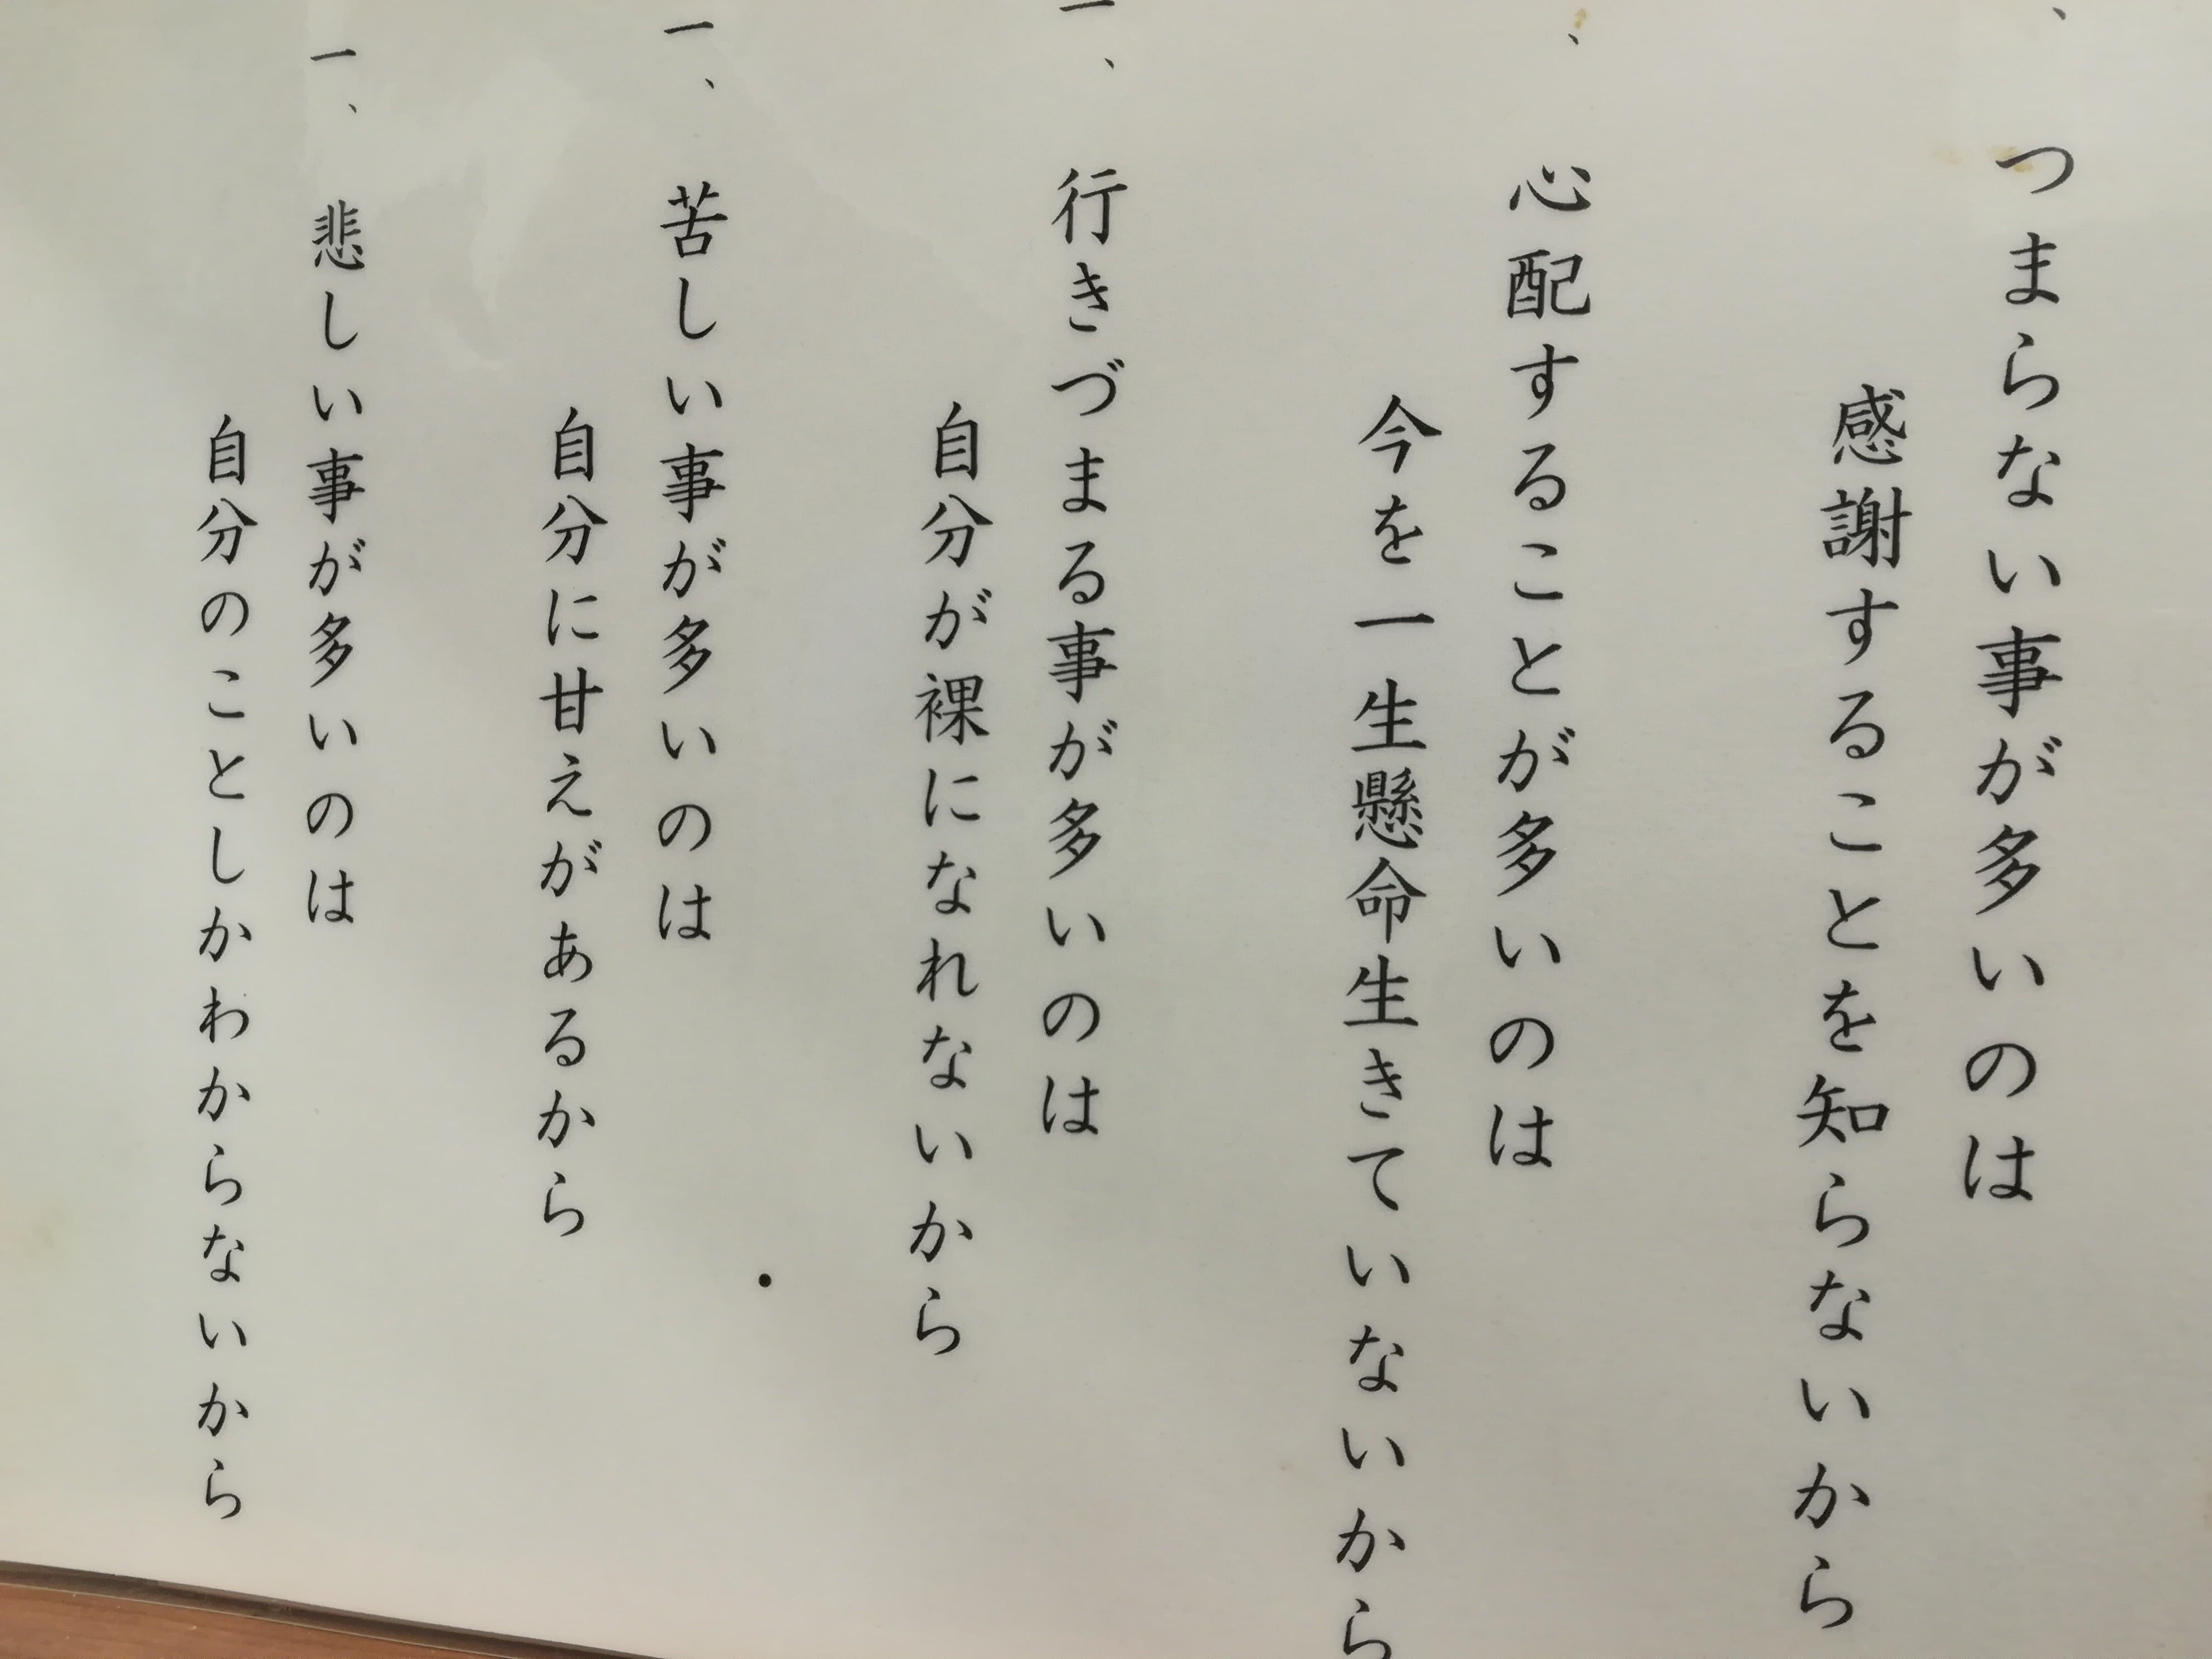 、つまらない事が多いのは
感謝することを知らないから
、心配することが多いのは
今を一生懸命生きていないから
一、行きづまる事が多いのは
自分が裸になれないから
一、苦しい事が多いのは
自分に甘えがあるから
一、悲しい事が多いのは
自分のことしかわからないから